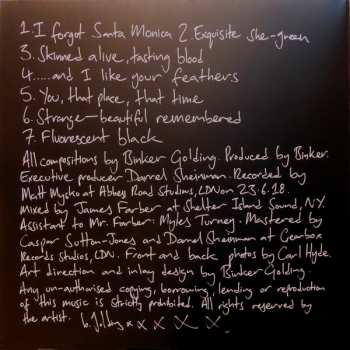 1. I forgot Santa Monica 2. Exquisite she-green
3. Skinned alive, tasting blood
4.....and I like your feathers
5. You, that place, that time
6. Strange-beautiful remembered
7. Fluorescent black
All compositions by Binker Golding. Produced by Binker.
Executive producer Darrel Sheinman. Recorded by
Matt Mysko at Abbey Road Studios, LDN on 23.6.18.
Mixed by James Farber at Shelter Island Sound, NY.
Assistant to Mr. Farber: Myles Turney. Mastered by
Caspar Sutton-Jones and Darrel Sheinman at Gearbox
Records Studios, LDN. Front and back photos by Carl Hyde.
Art direction and inlay design by Binker Golding.
Any un-authorised copying, borrowing, lending or reproduction
of this music is strictly prohibited. All rights reserved by
the artist. B. Golding x x x x x.